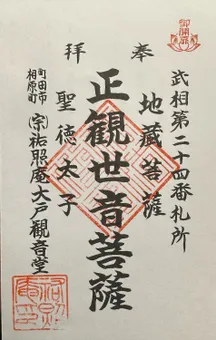 武相第二十四番札所
奉拝
地蔵菩薩
正観世音菩薩
聖徳太子
町田市
相原町
(宗)祐照庵大戸観音堂